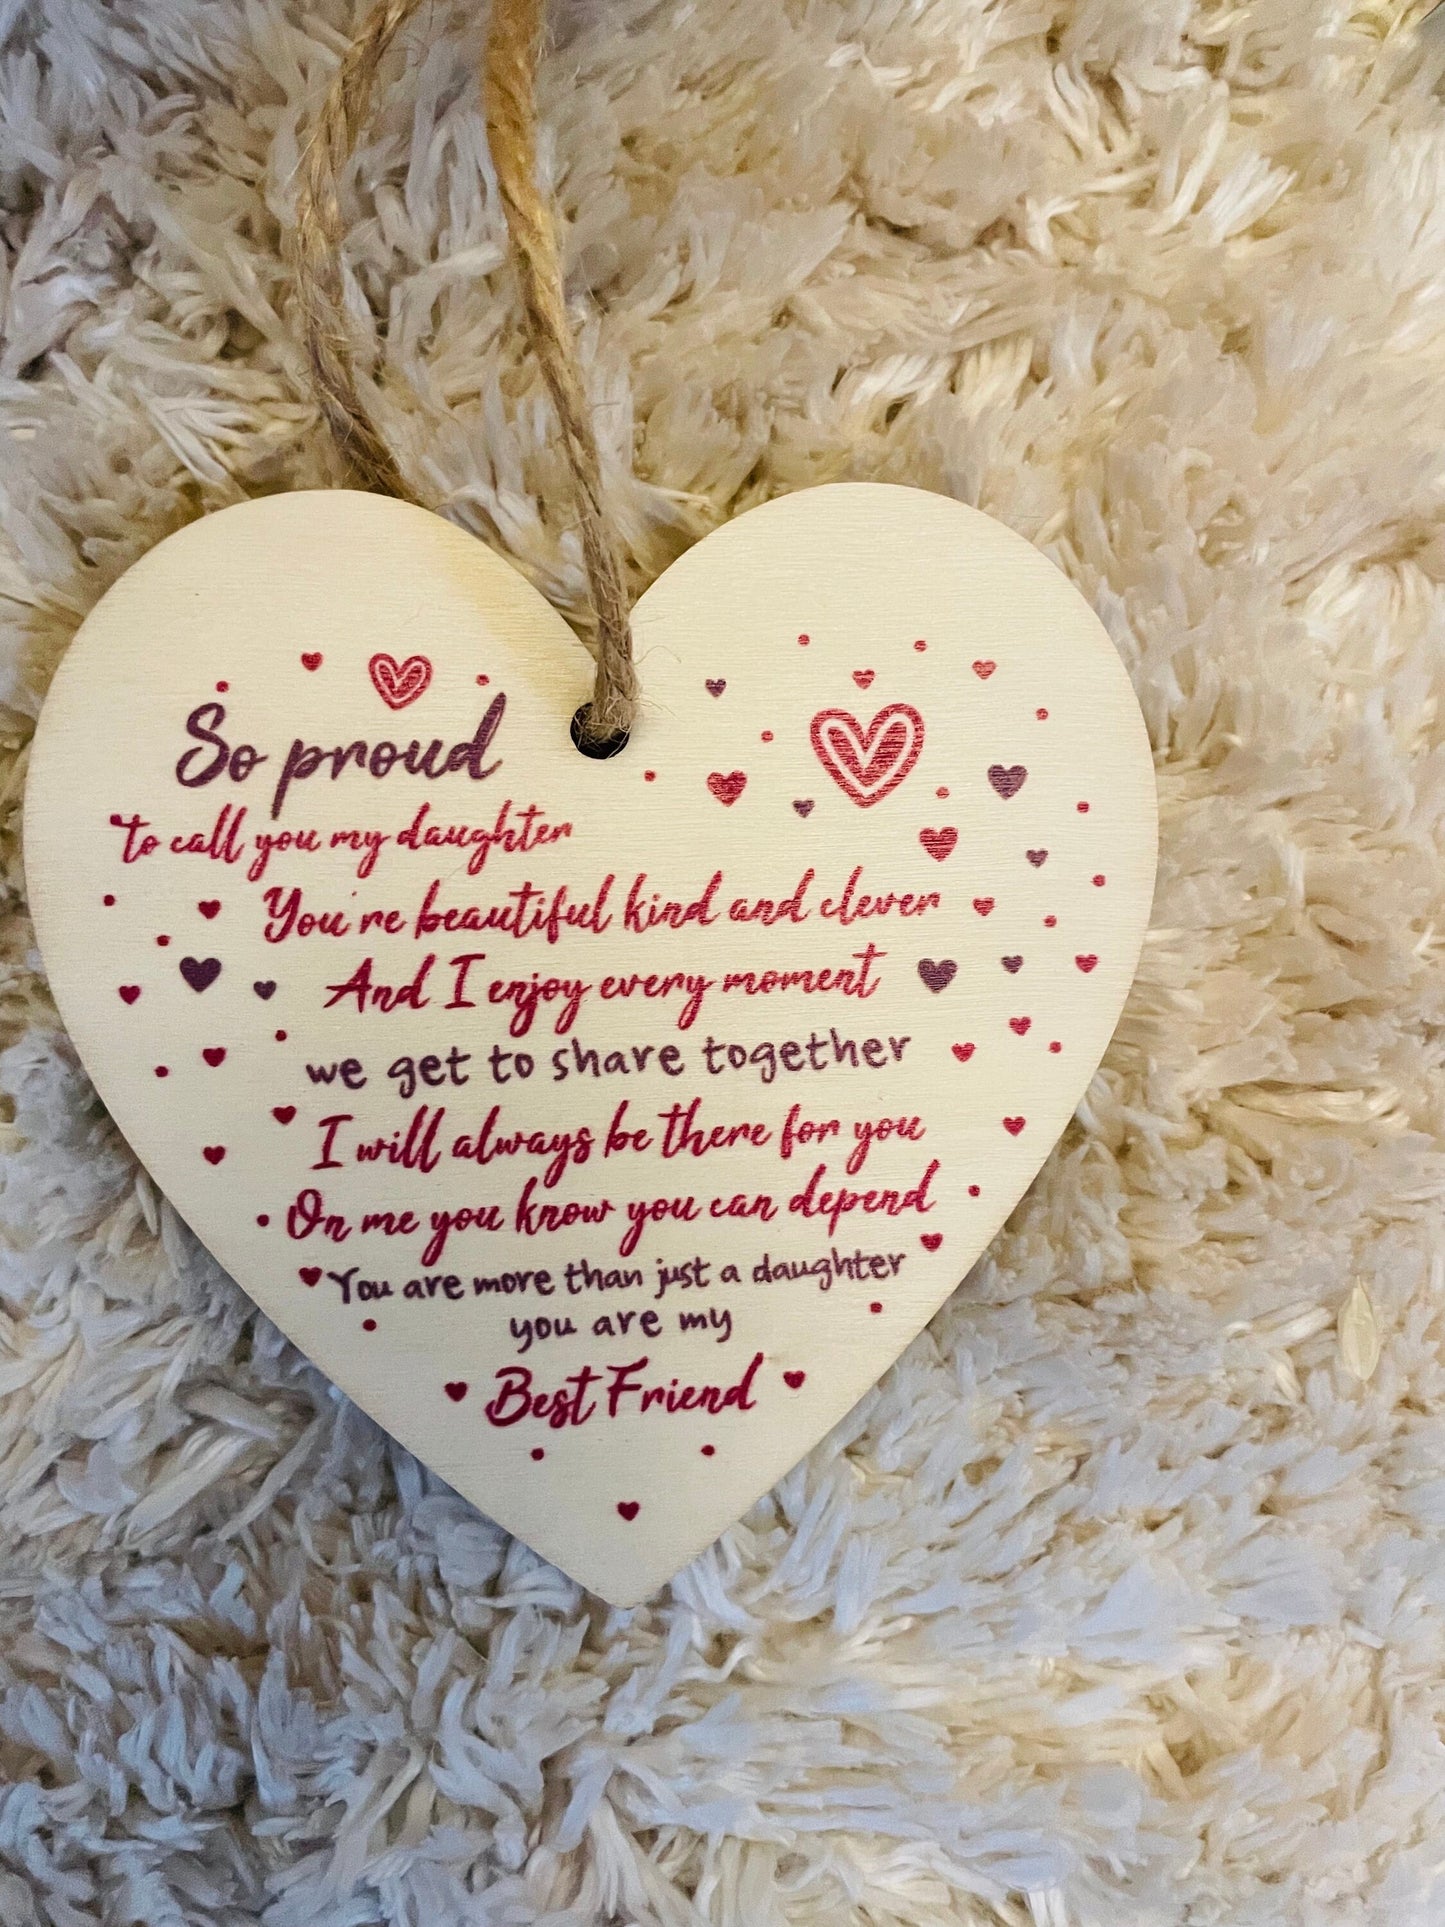 So proud
to call you my daughter
You're beautiful kind and clever
And I enjoy every moment
we get to share together
I will always be there for you
On me you know you can depend
You are more than just a daughter
you are my
Best Friend